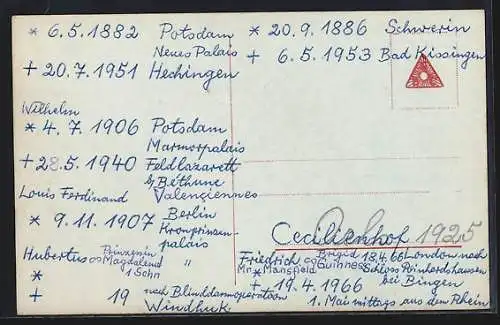 * 6.5.1882 Potsdam
Neues Palais
+ 20.7.1951 Hechingen
* 20.9.1886 Schwerin
+ 6.5.1953 Bad Kissingen
Wilhelm
* 4.7.1906 Potsdam
Marmorpalais
+ 28.5.1940 Feldlazarett
b/ Béthune
Valenciennes
Louis Ferdinand
* 9.11.1907 Berlin
Kronprinzen-
palais
Hubertus ∞ Prinzessin
Magdalena "
1 Sohn
*
+ 19 nach Blinddarmoperation
Windhuk
Cecilienhof 1925
Friedrich ∞ Brigid 18.4.66 London nach
Mr. Mansfield Guinness Schloss Reinhardshausen
* bei Bingen
+ 19.4.1966 1. Mai mittags aus dem Rhein